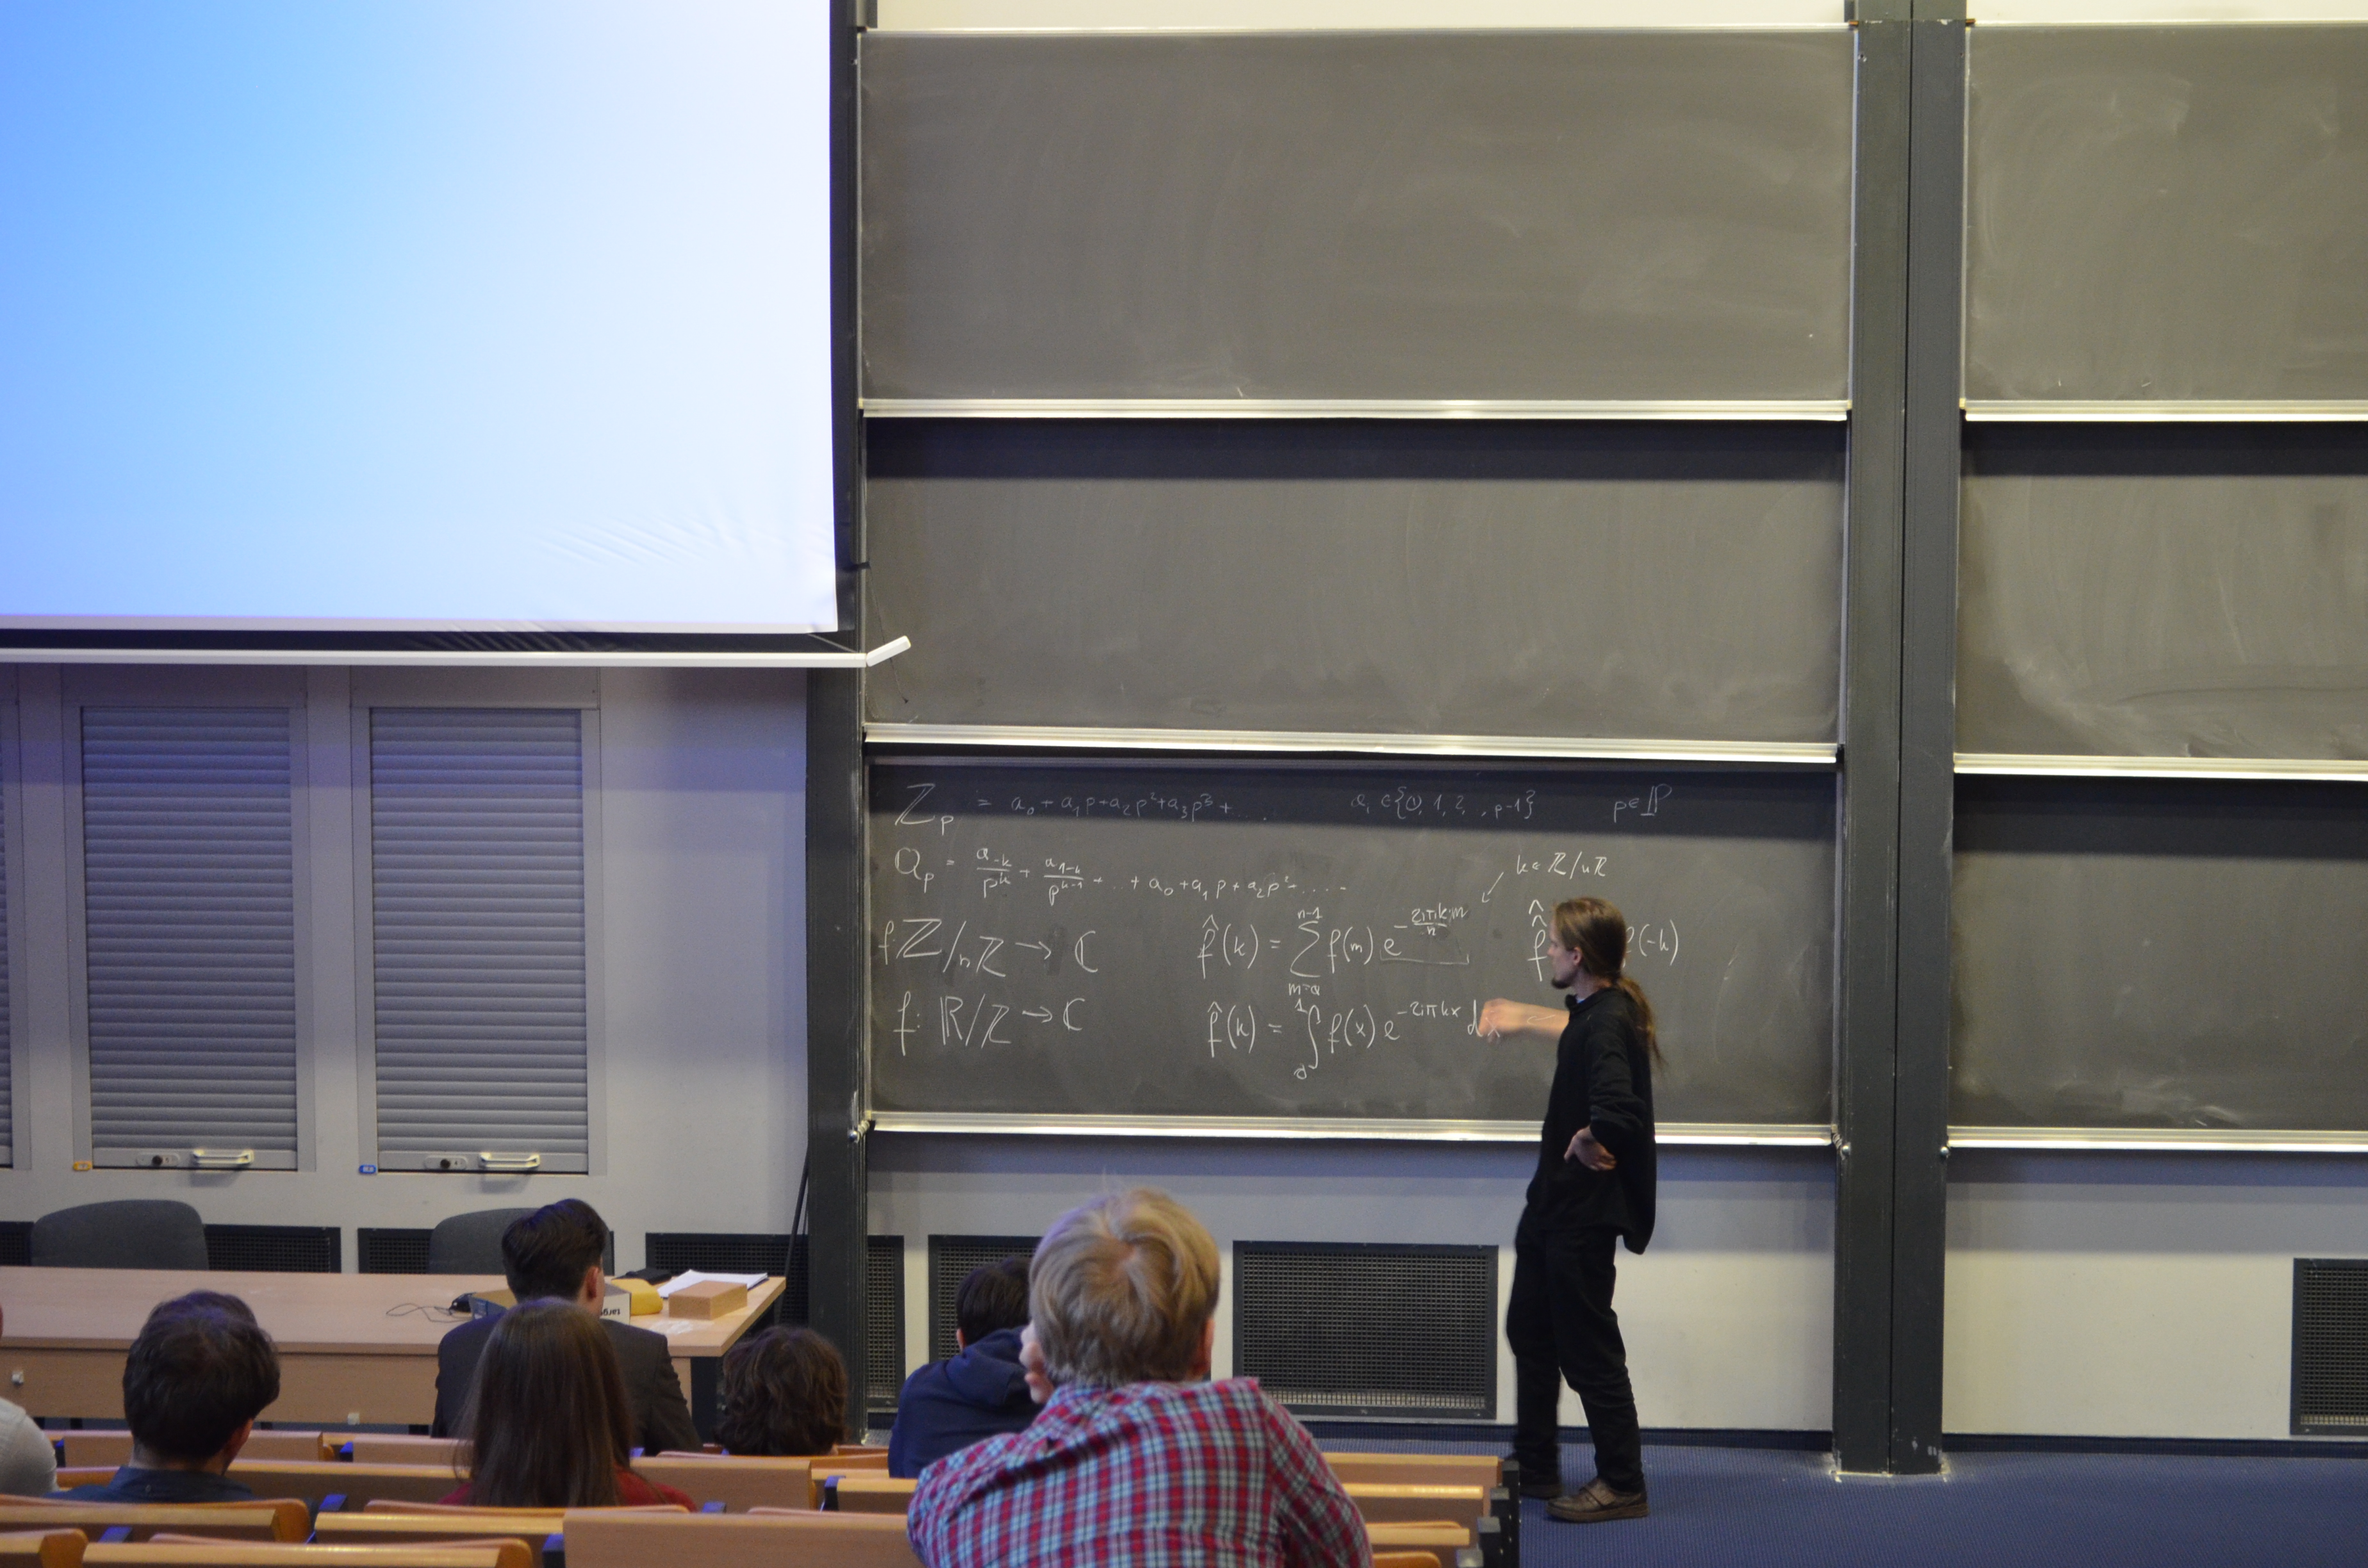 ℤ_p = a_0 + a_1 p + a_2 p^2 + a_3 p^3 + .... a_i ∈ {0, 1, 2, .., p-1} p ∈ ℙ
ℚ_p = a_{-k}/p^k + a_{1-k}/p^{k-1} + .. + a_0 + a_1 p + a_2 p^2 + .....
k ∈ ℤ/nℤ
f: ℤ/nℤ → ℂ f̂(k) = ∑_{m=0}^{n-1} f(m) e^{-2iπkm/n} f(-k)
f: ℝ/ℤ → ℂ f̂(k) = ∫_0^1 f(x) e^{-2iπkx} dx